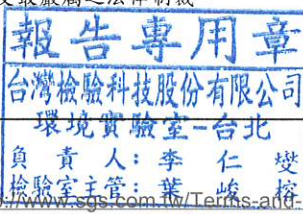 受最嚴厲之法律制裁
報告專用章
台灣檢驗科技股份有限公司
環境實驗室-台北
負責人:李仁燮
檢驗室主管:葉峻榕
://www.sgs.com.tw/Terms-and-